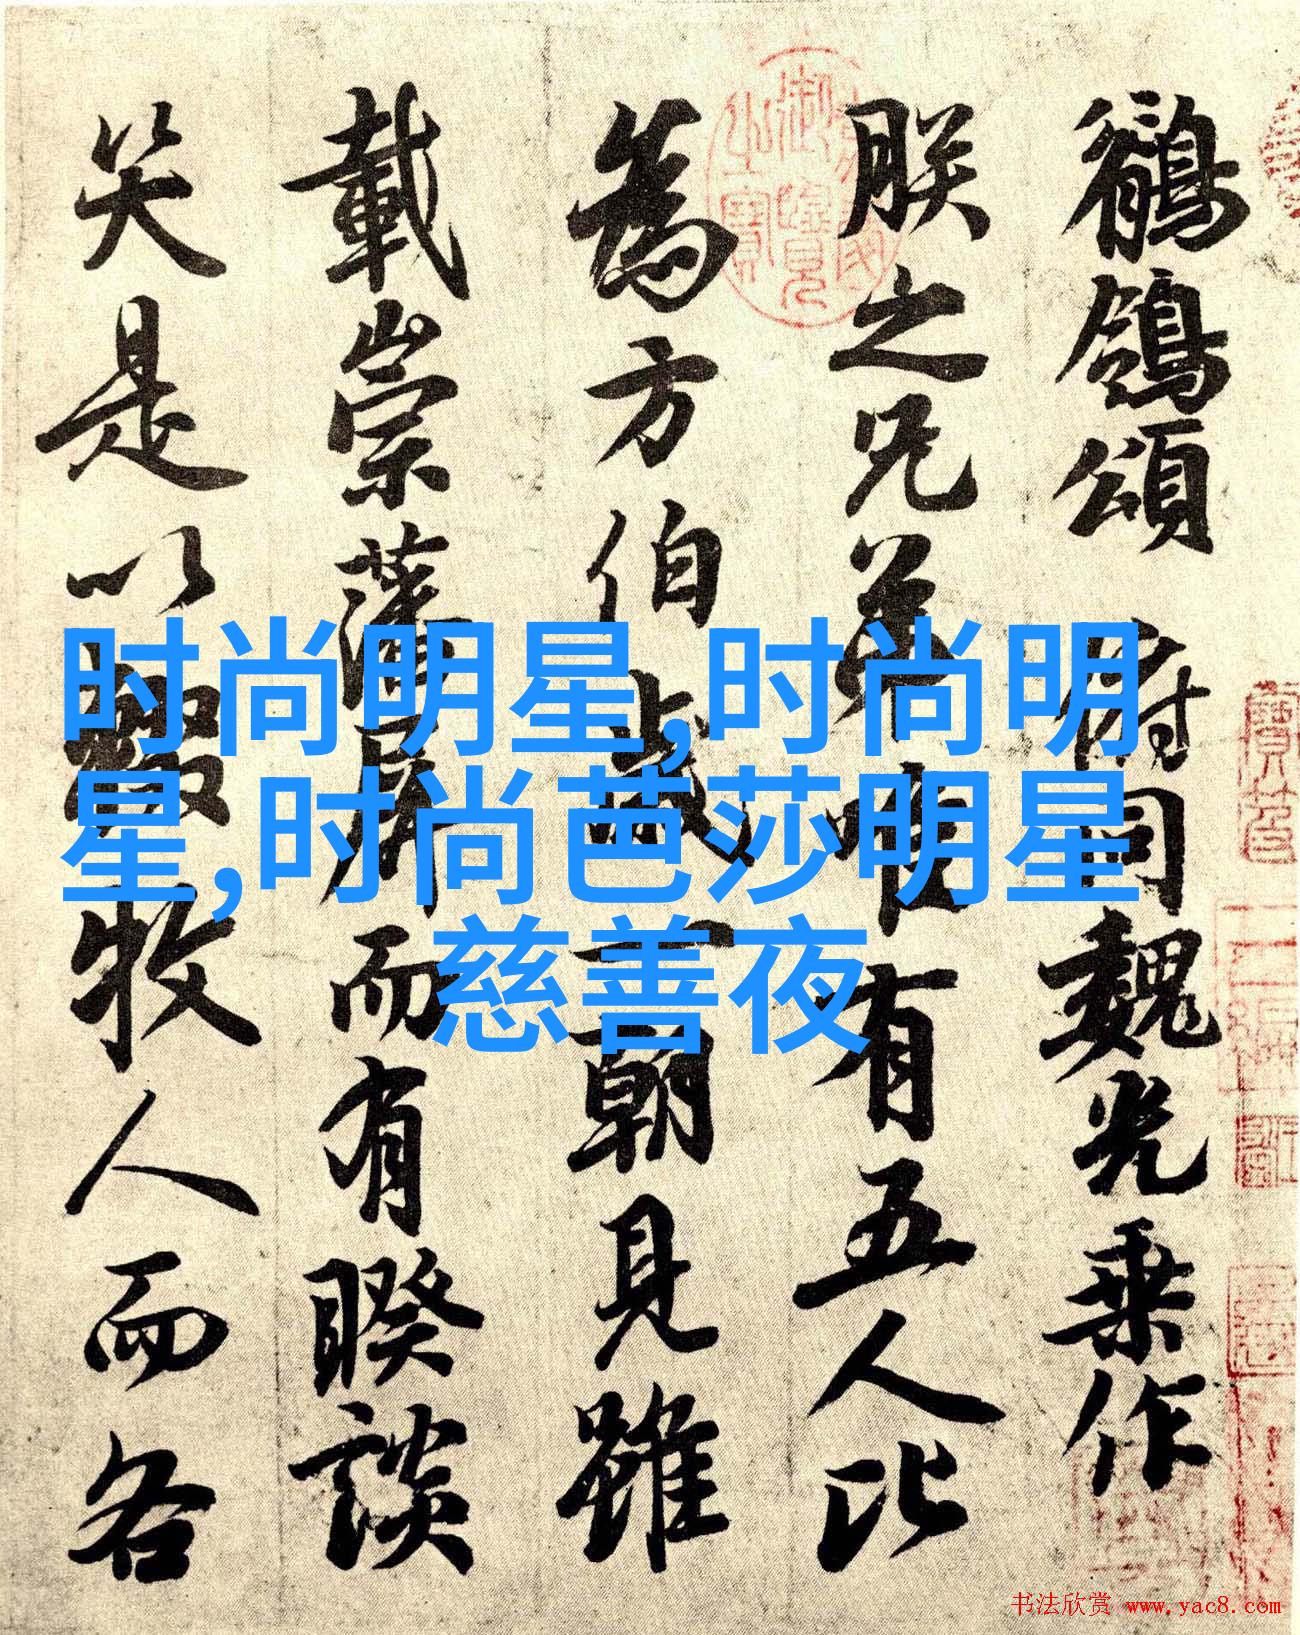 鶺鴒頌 俯同魏光乘作
朕之兄弟唯有五人比
為方伯歲一朝見雖
載崇藩屏而有睽談
笑是以輟牧人而各
时尚明星,时尚明
星,时尚芭莎明星
慈善夜
书法欣赏 www.yac8.com